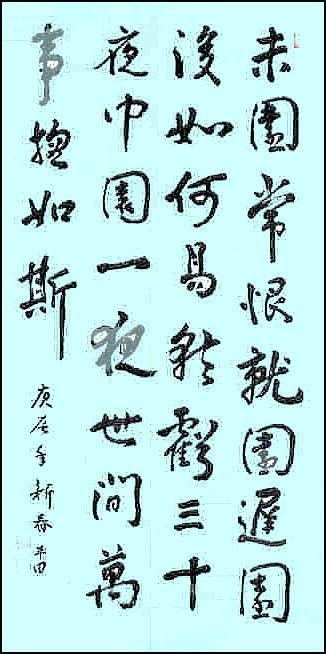 未圓常恨就圓遲圓
後如何易就虧三十
夜中圓一夜世間萬
事摠如斯
庚辰年新春